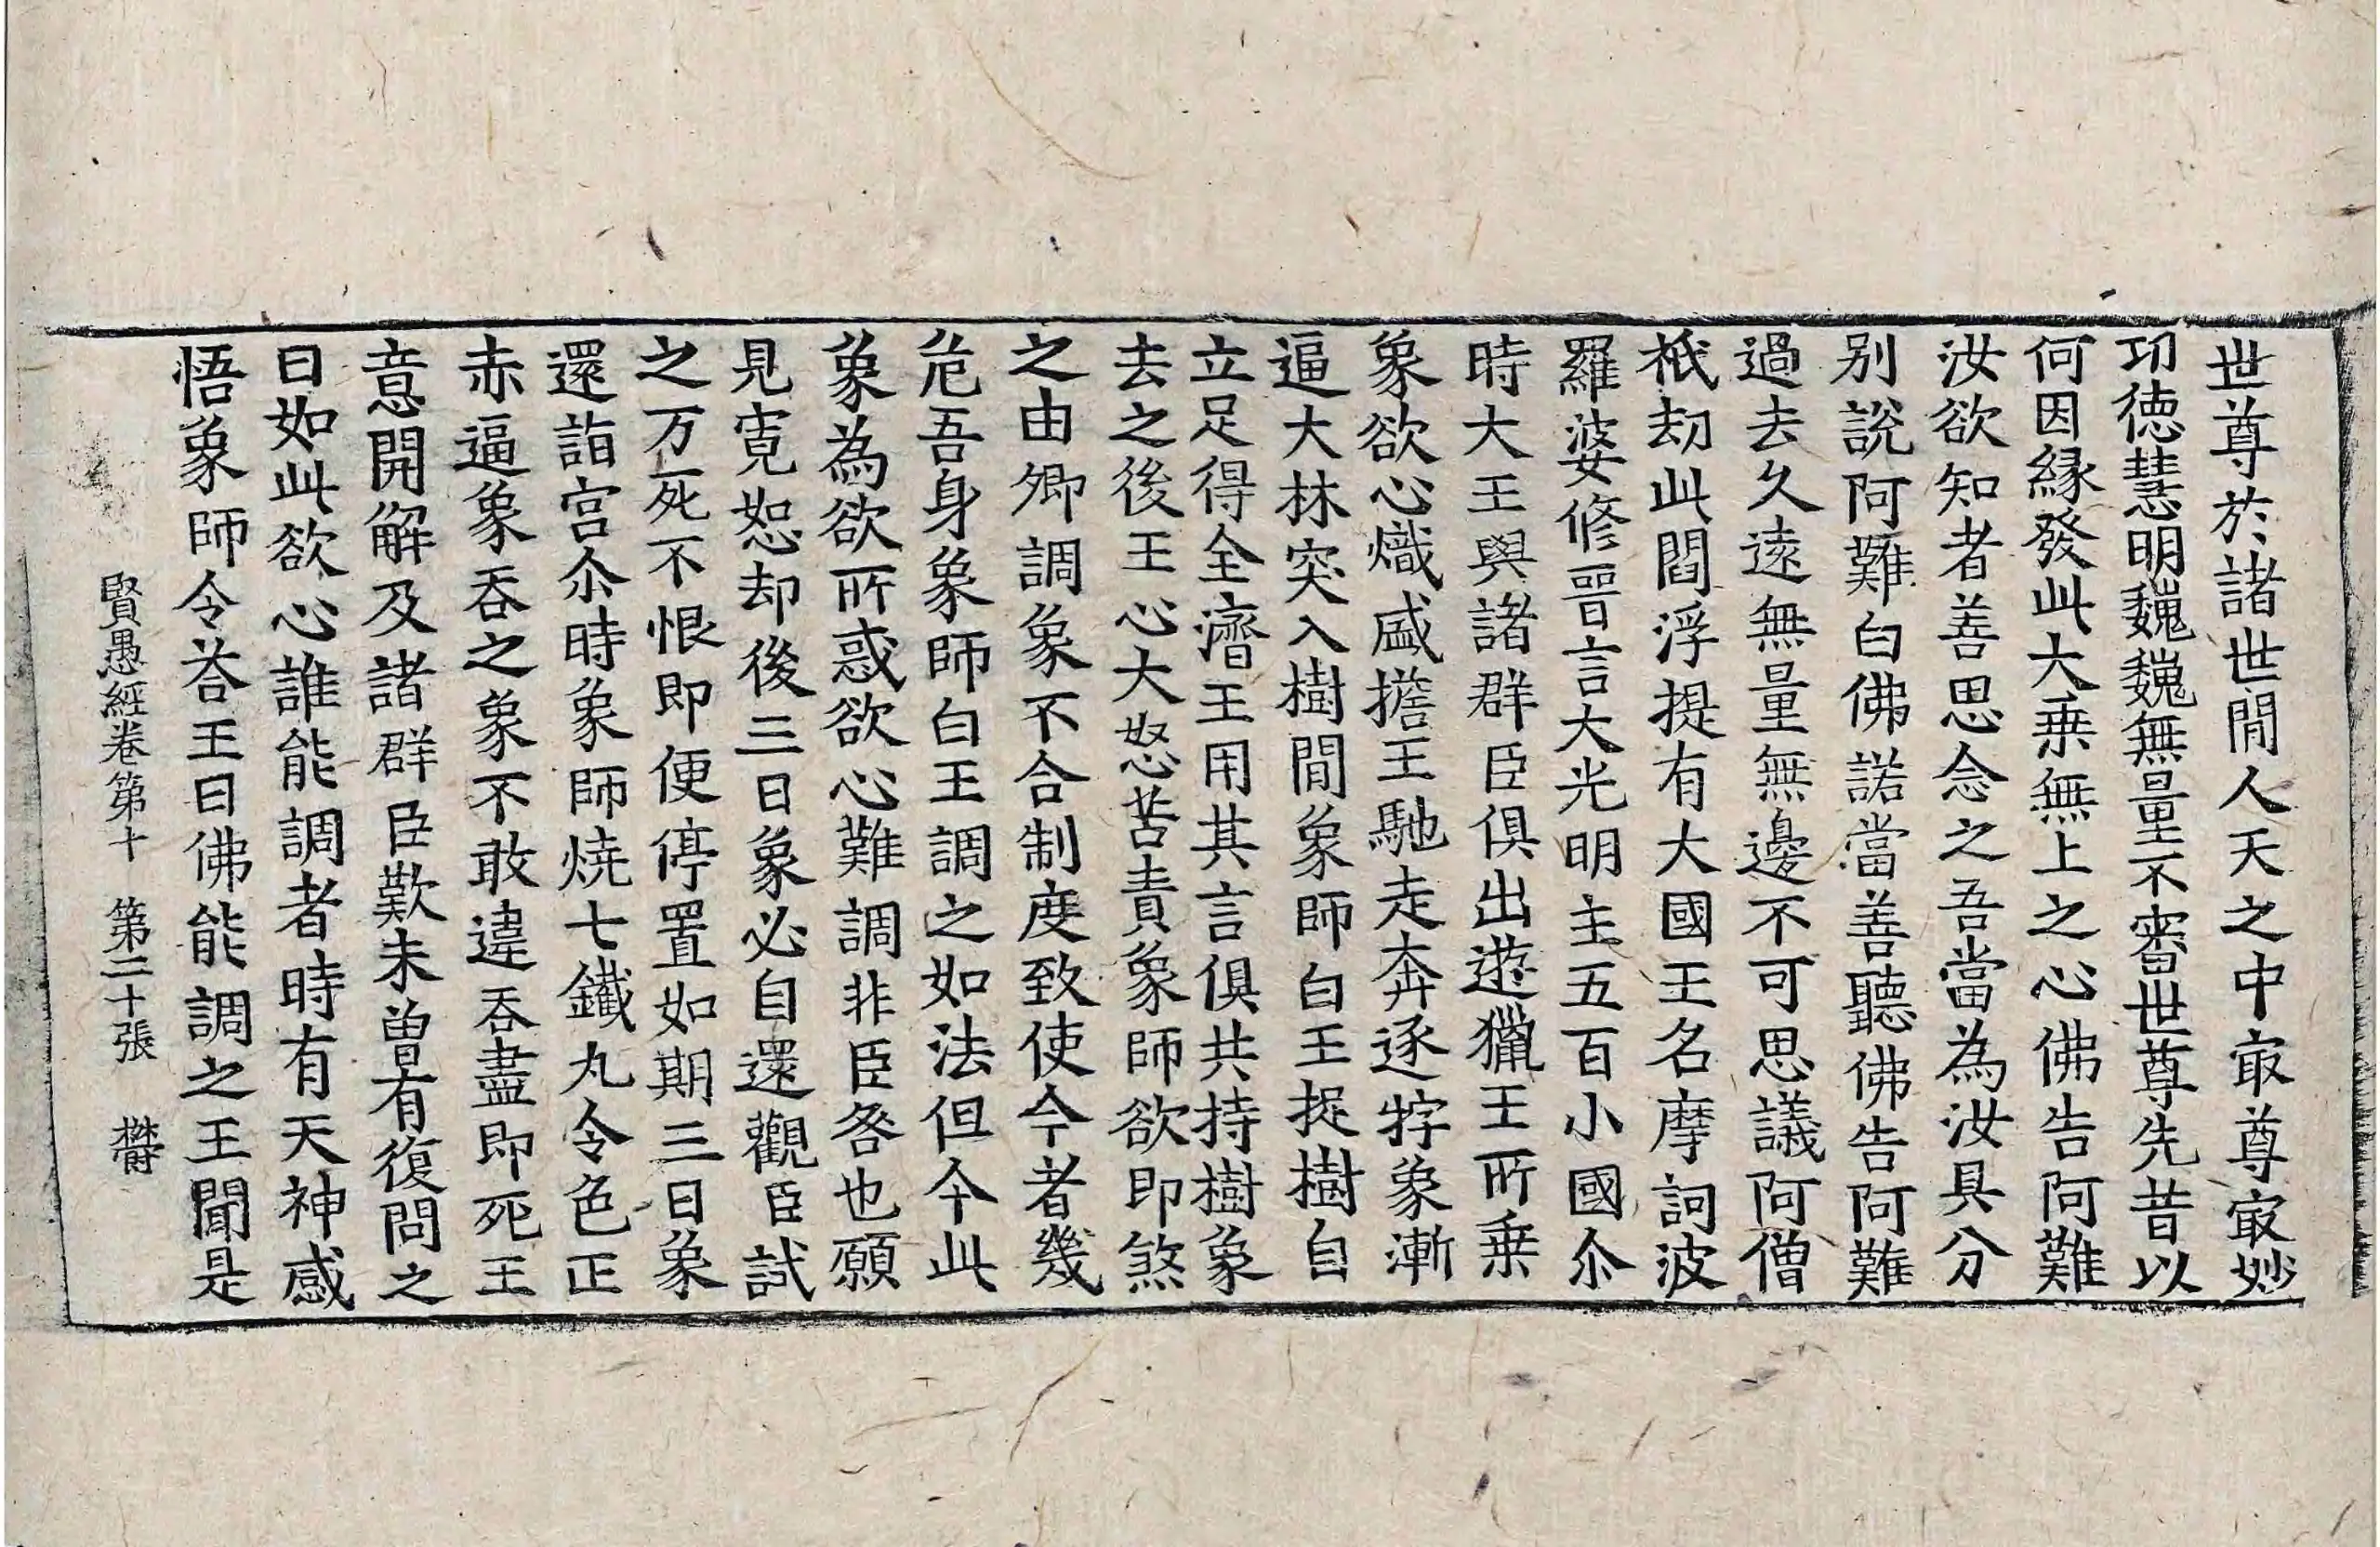 世尊於諸世閒人天之中㝡尊㝡妙
功徳慧明巍巍無量不審世尊先昔以
何因緣發此大乗無上之心佛告阿難
汝欲知者善思念之吾當為汝具分
別說阿難白佛諾當善聽佛告阿難
過去久遠無量無邊不可思議阿僧
祇劫此閻浮提有大國王名摩訶波
羅婆修晉言大光明主五百小國尒
時大王與諸群臣俱出遊獵王所乗
象欲心熾盛擔王馳走奔逐牸象漸
逼大林突入樹閒象師白王捉樹自
立足得全濟王用其言俱共持樹象
去之後王心大怒苦責象師欲即煞
之由卿調象不合制度致使今者幾
危吾身象師白王調之如法但今此
象為欲所惑欲心難調非臣咎也願
見寛恕却後三日象必自還觀臣試
之万死不恨即便停置如期三日象
還詣宫尒時象師燒七鐵丸令色正
赤逼象吞之象不敢違吞盡即死王
意開解及諸群臣歎未曾有復問之
曰如此欲心誰能調者時有天神感
悟象師令荅王曰佛能調之王聞是
賢愚經卷第十 第二十張 欝